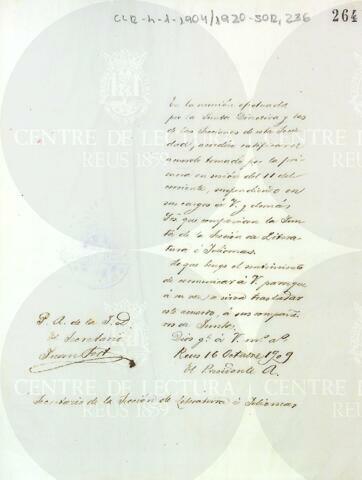 CLR-h-1-1904/1920-SOR, 236
264
En la reunión efectuada
por la Junta Directiva y las
de las Secciones de esta Socie
dad, acordóse ratificar el
acuerdo tomado por la pri
mera en sesión del 11 del
corriente, suspendiendo en
sus cargos á V. y demás
Sres que componían la Jun
ta de la Sección de Litera
tura é Idiomas.
Lo que tengo el sentimiento
de comunicar á V. para que
á su vez se sirva trasladar
este acuerdo, á sus compañe
ros de Junta.
Dios g. á V. m. a.
Reus 16 Octubre 1909
El Presidente A.
P. A. de la J. D.
El Secretario
Juan Fort
Secretario de la Sección de Literatura é Idiomas
CENTRE DE LECTURA
REUS 1859
CENTRE DE LECTURA
REUS 1859